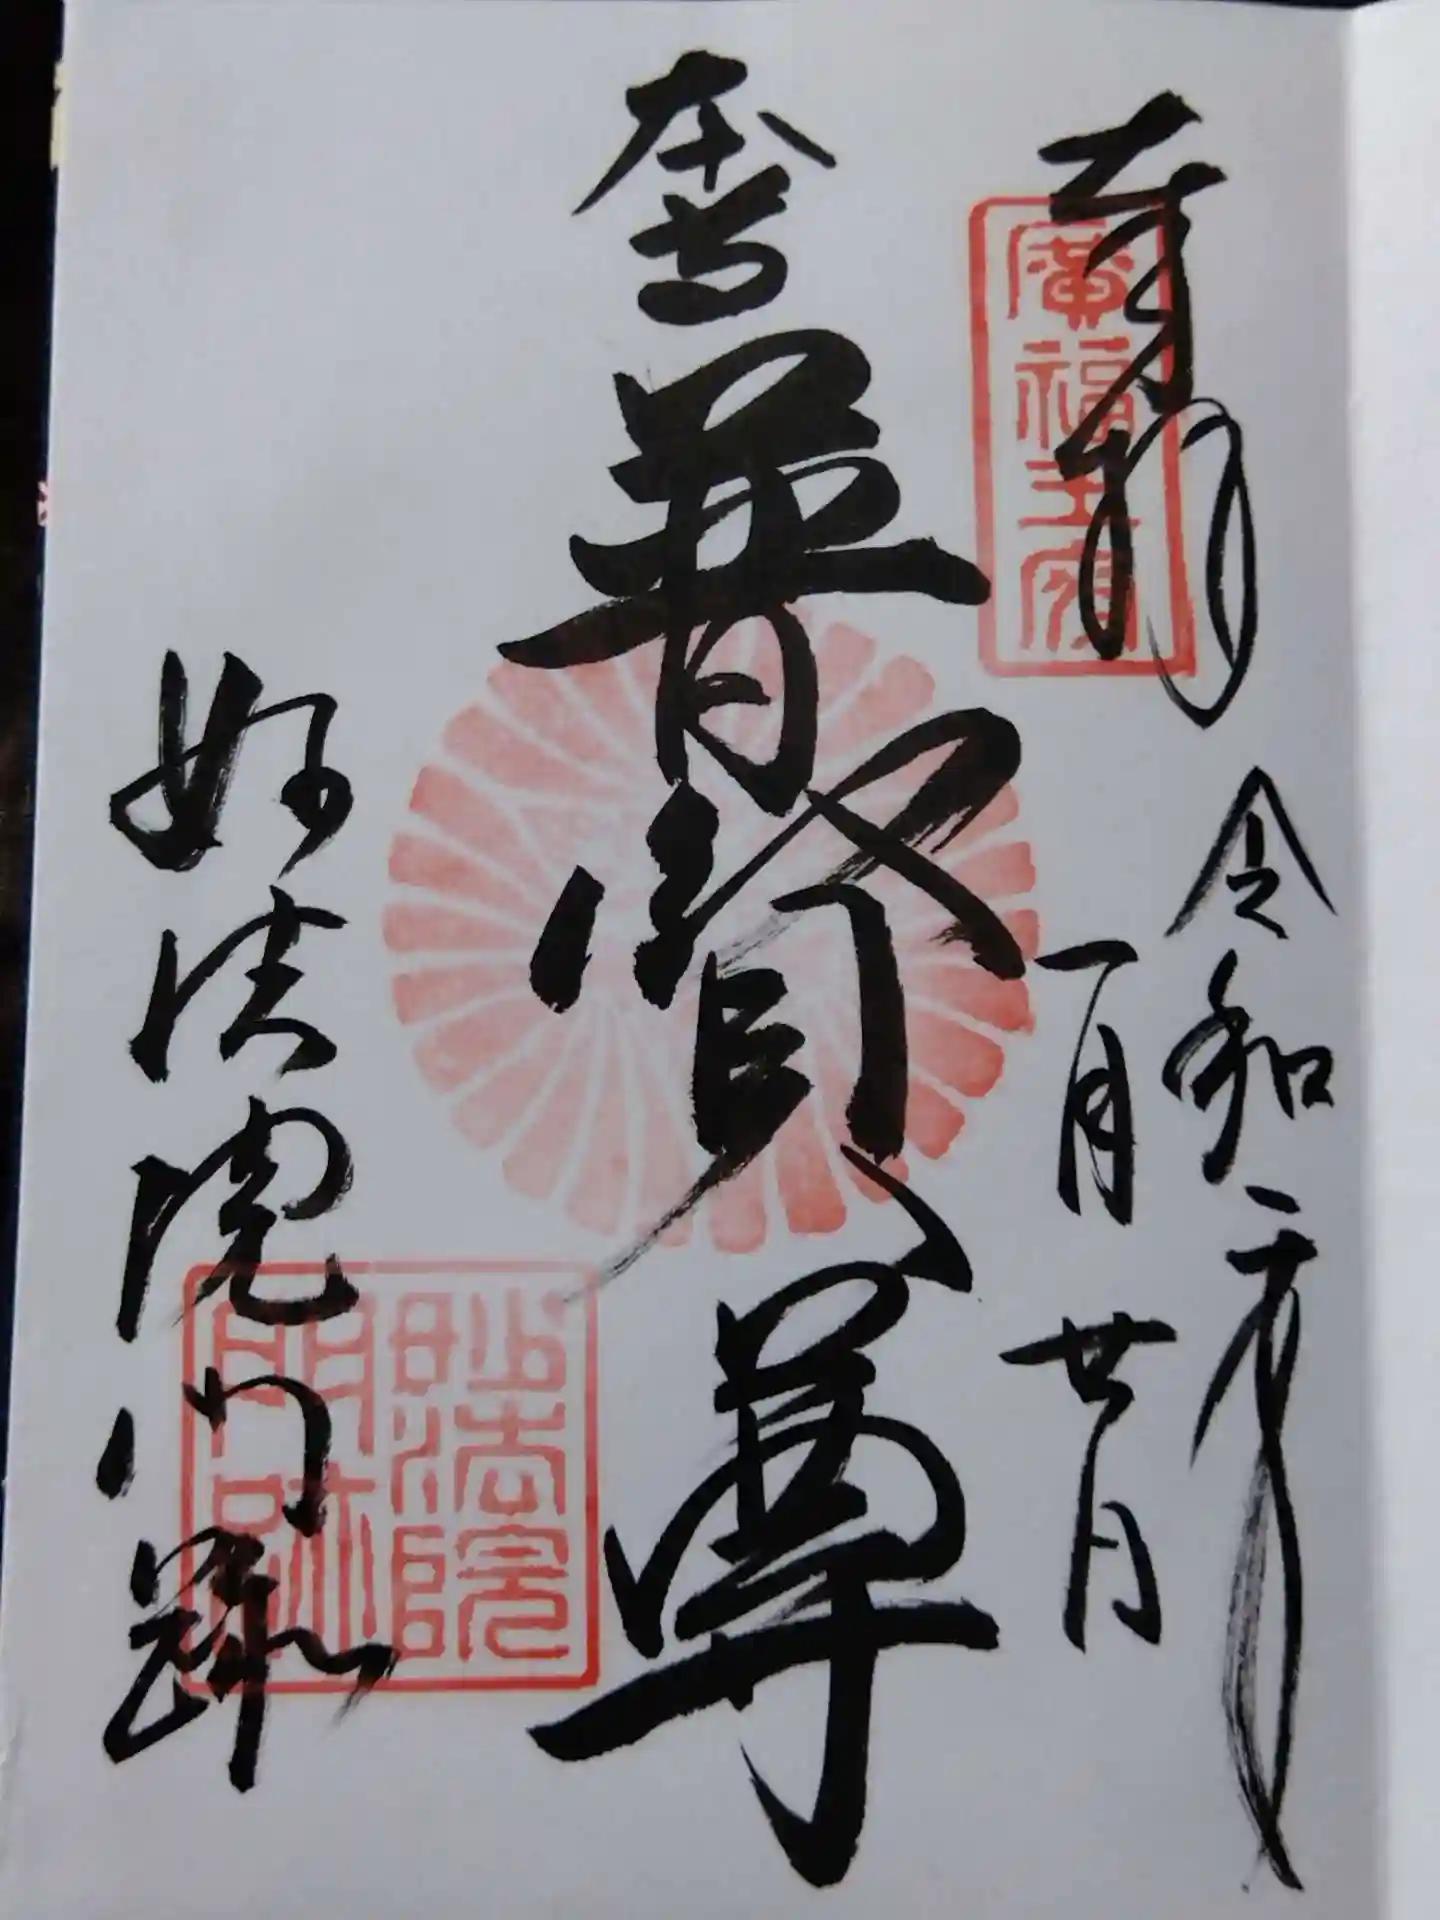 奉拝
令和二年
一月廿日
本尊
普賢尊
妙法院門跡
妙法院
門跡